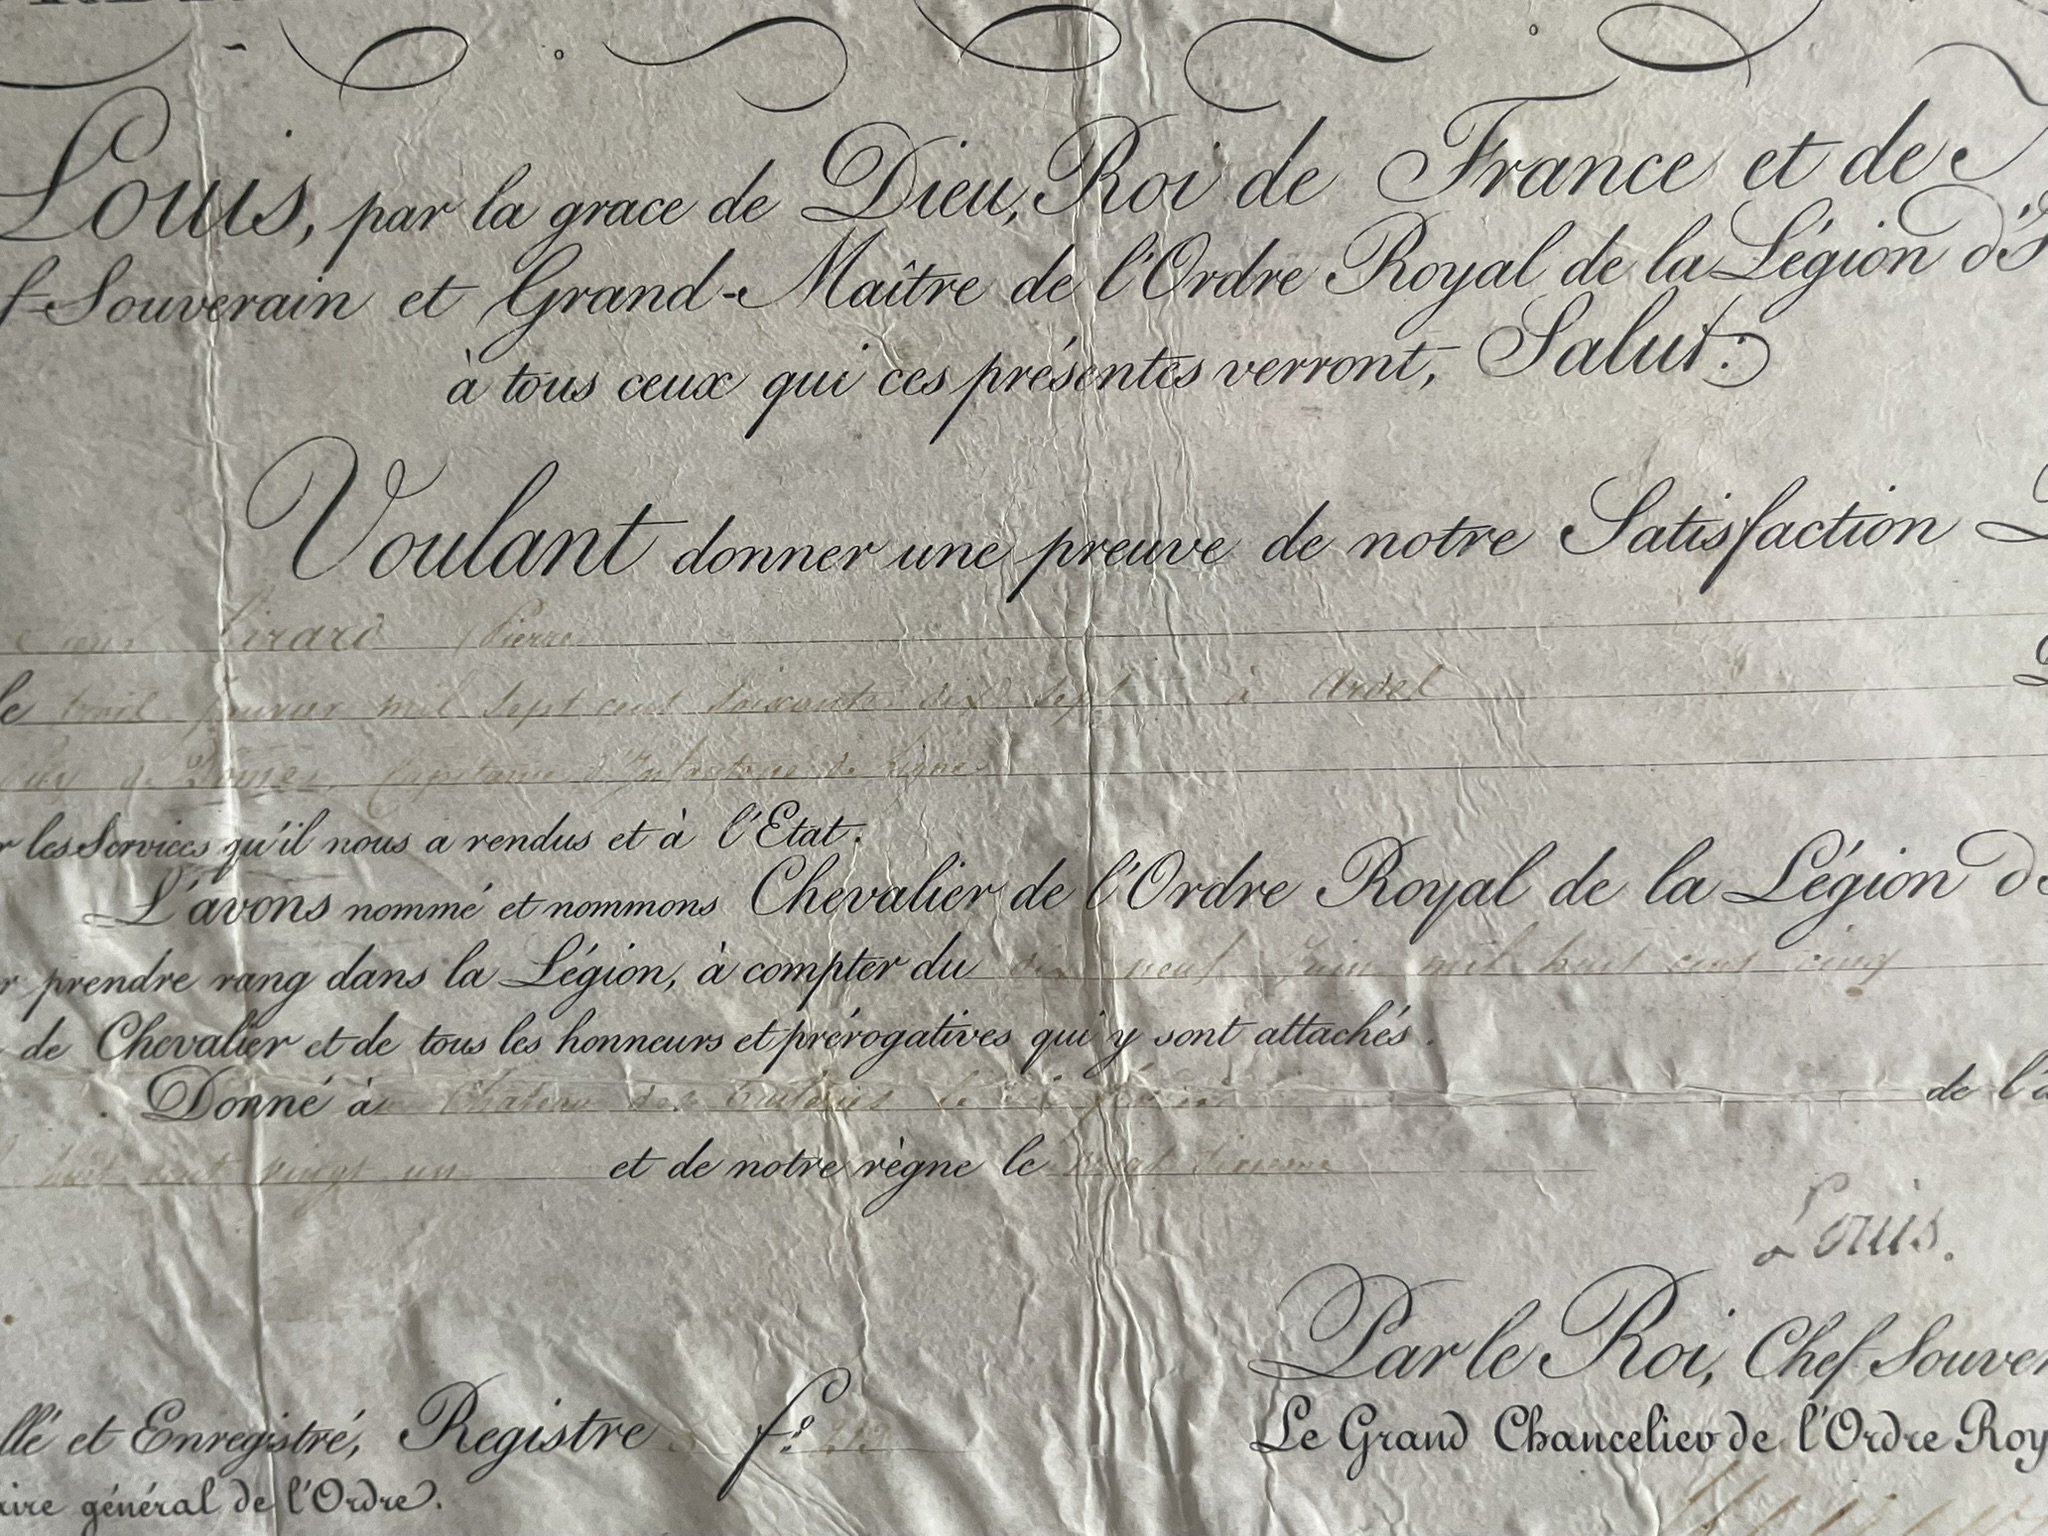 Louis, par la grace de Dieu, Roi de France et de
Souverain et Grand-Maître de l'Ordre Royal de la Légion d'
à tous ceux qui ces présentes verront, Salut.
Voulant donner une preuve de notre Satisfaction
Pierre
le trois mil sept cent soixante dix sept à Ardel
de Capitaine d'Infanterie de Ligne
les Services qu'il nous a rendus et à l'Etat.
L'avons nommé et nommons Chevalier de l'Ordre Royal de la Légion
prendre rang dans la Légion, à compter du dix neuf Juin mil huit cent cinq
de Chevalier et de tous les honneurs et prérogatives qui y sont attachés.
Donné à Château des Tuileries le
huit cent vingt un et de notre règne le
Louis.
Par le Roi, Chef Souver
llé et Enregistré, Registre f.º
Le Grand Chancelier de l'Ordre Roy
aire général de l'Ordre.